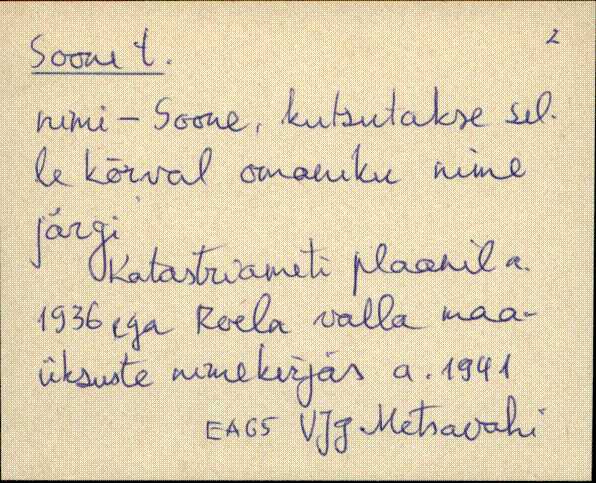 2
Soone t.
nimi - Soone, kutsutakse sel-
le kõrval omaniku nime
järgi
Katastriameti plaanil a.
1936 ega Roela valla maa-
üksuste nimekirjas a. 1941
EAGS VJg Metsavahi